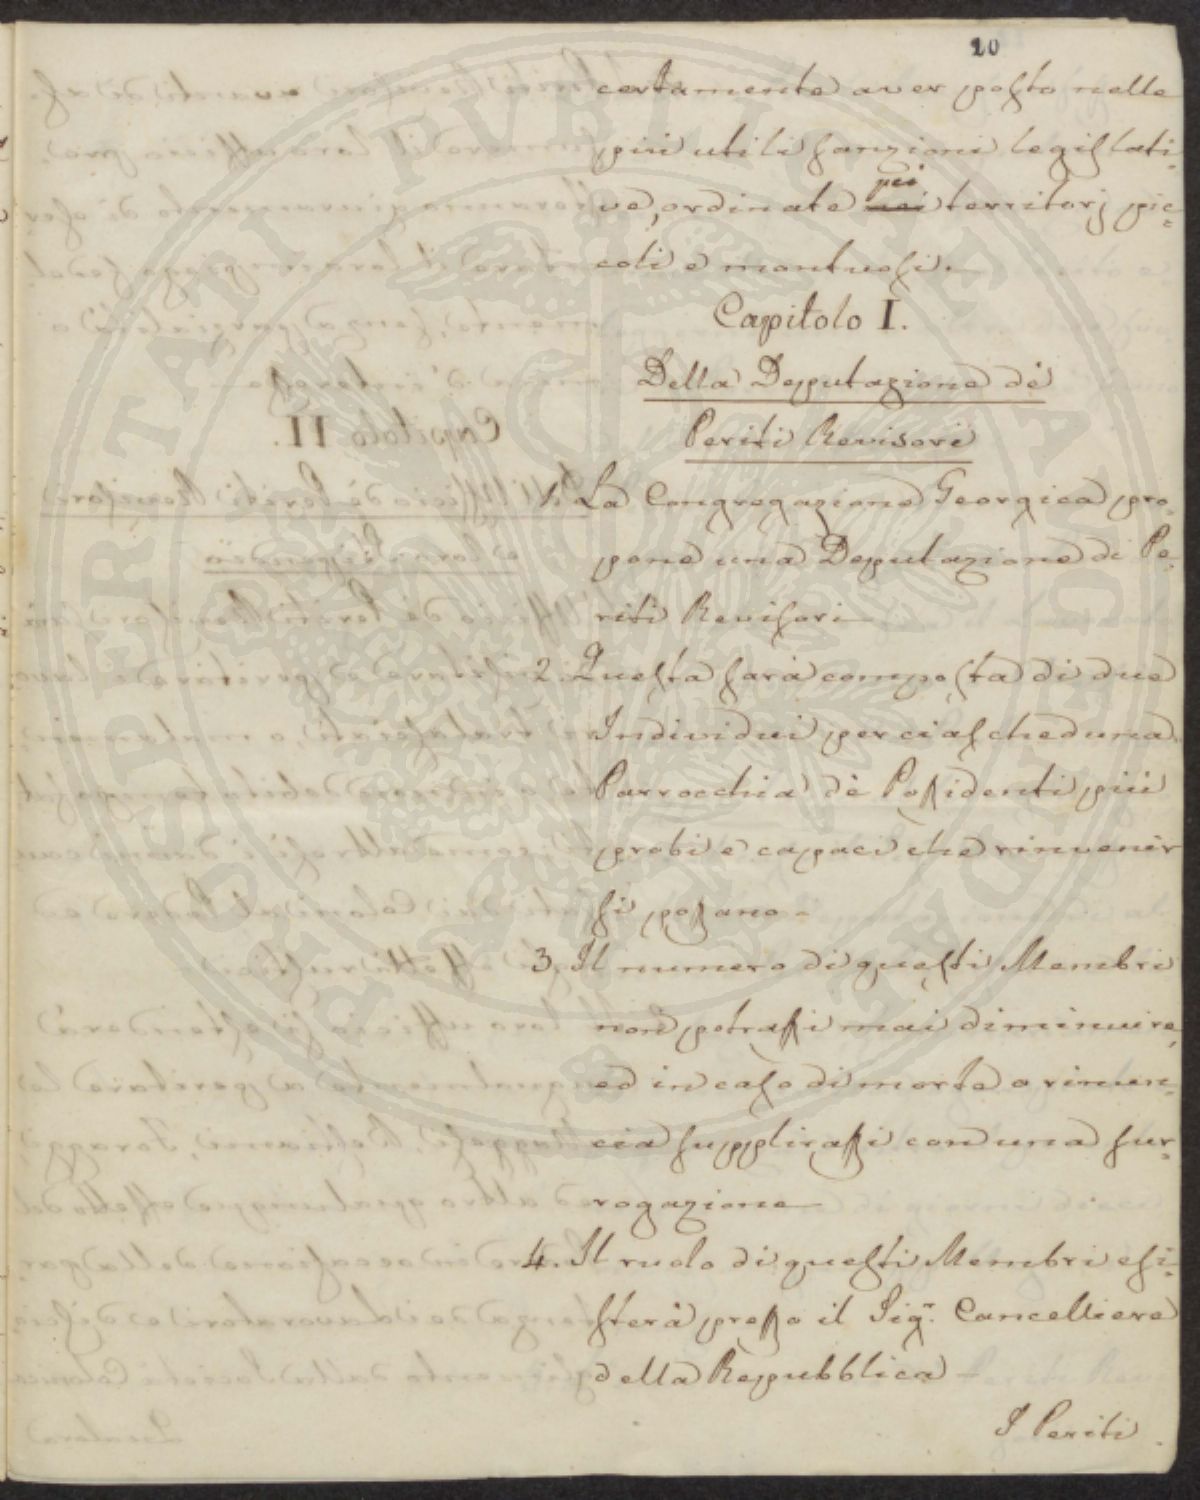 10
certamente aver posto nelle
più utili sanzioni legislati=
pei
ve, ordinate nei territorj pic=
coli e montuosi.—
Capitolo I.
Della Deputazione dè
Periti Revisori
1. La Congregazione Georgica pro=
pone una Deputazione di Pe=
riti Revisori—
2. Questa sarà composta di due
Individui per ciascheduna
Parrocchia dè Possidenti più
probi e capaci che rinvenir
si possano.
3. Il numero di questi Membri
non potrassi mai diminuire,
ed in caso di morte o rinun=
cia supplirassi con una sur=
rogazione—
4. Il ruolo di questi Membri esi=
sterà presso il Sigr. Cancelliere
della Repubblica—
I Periti
PROSPERITATI PVBLICAE AVGENDAE